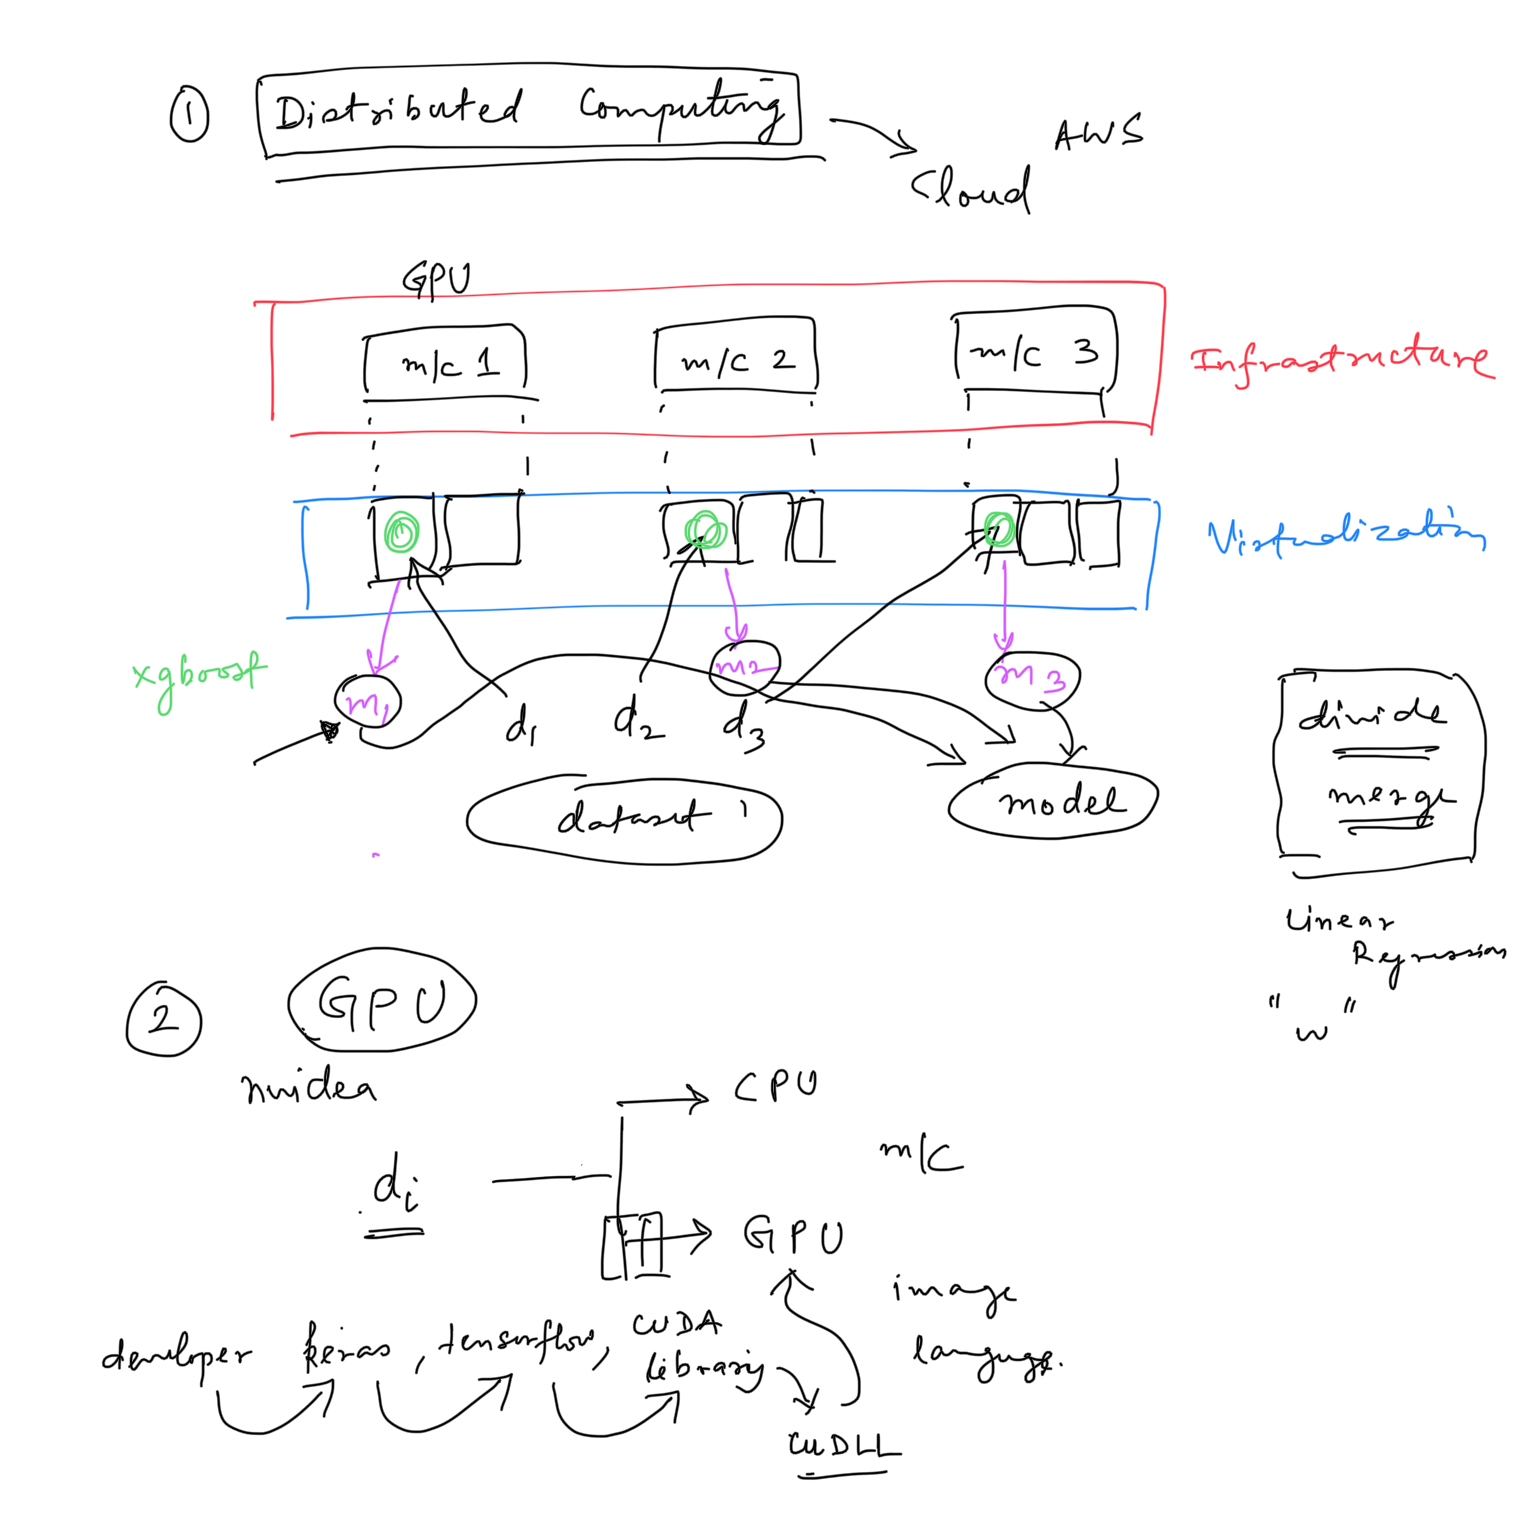 1 Distributed Computing
AWS
Cloud
GPU
m/c 1 m/c 2 m/c 3
Infrastructure
Virtualization
xgboost
m1 m2 m3
d1 d2 d3
dataset 1
model
divide
merge
Linear
Regression
"w"
2 GPU
nvidea
CPU
m/c
di
GPU
image
language.
developer keras, tensorflow, CUDA
library
CUDLL